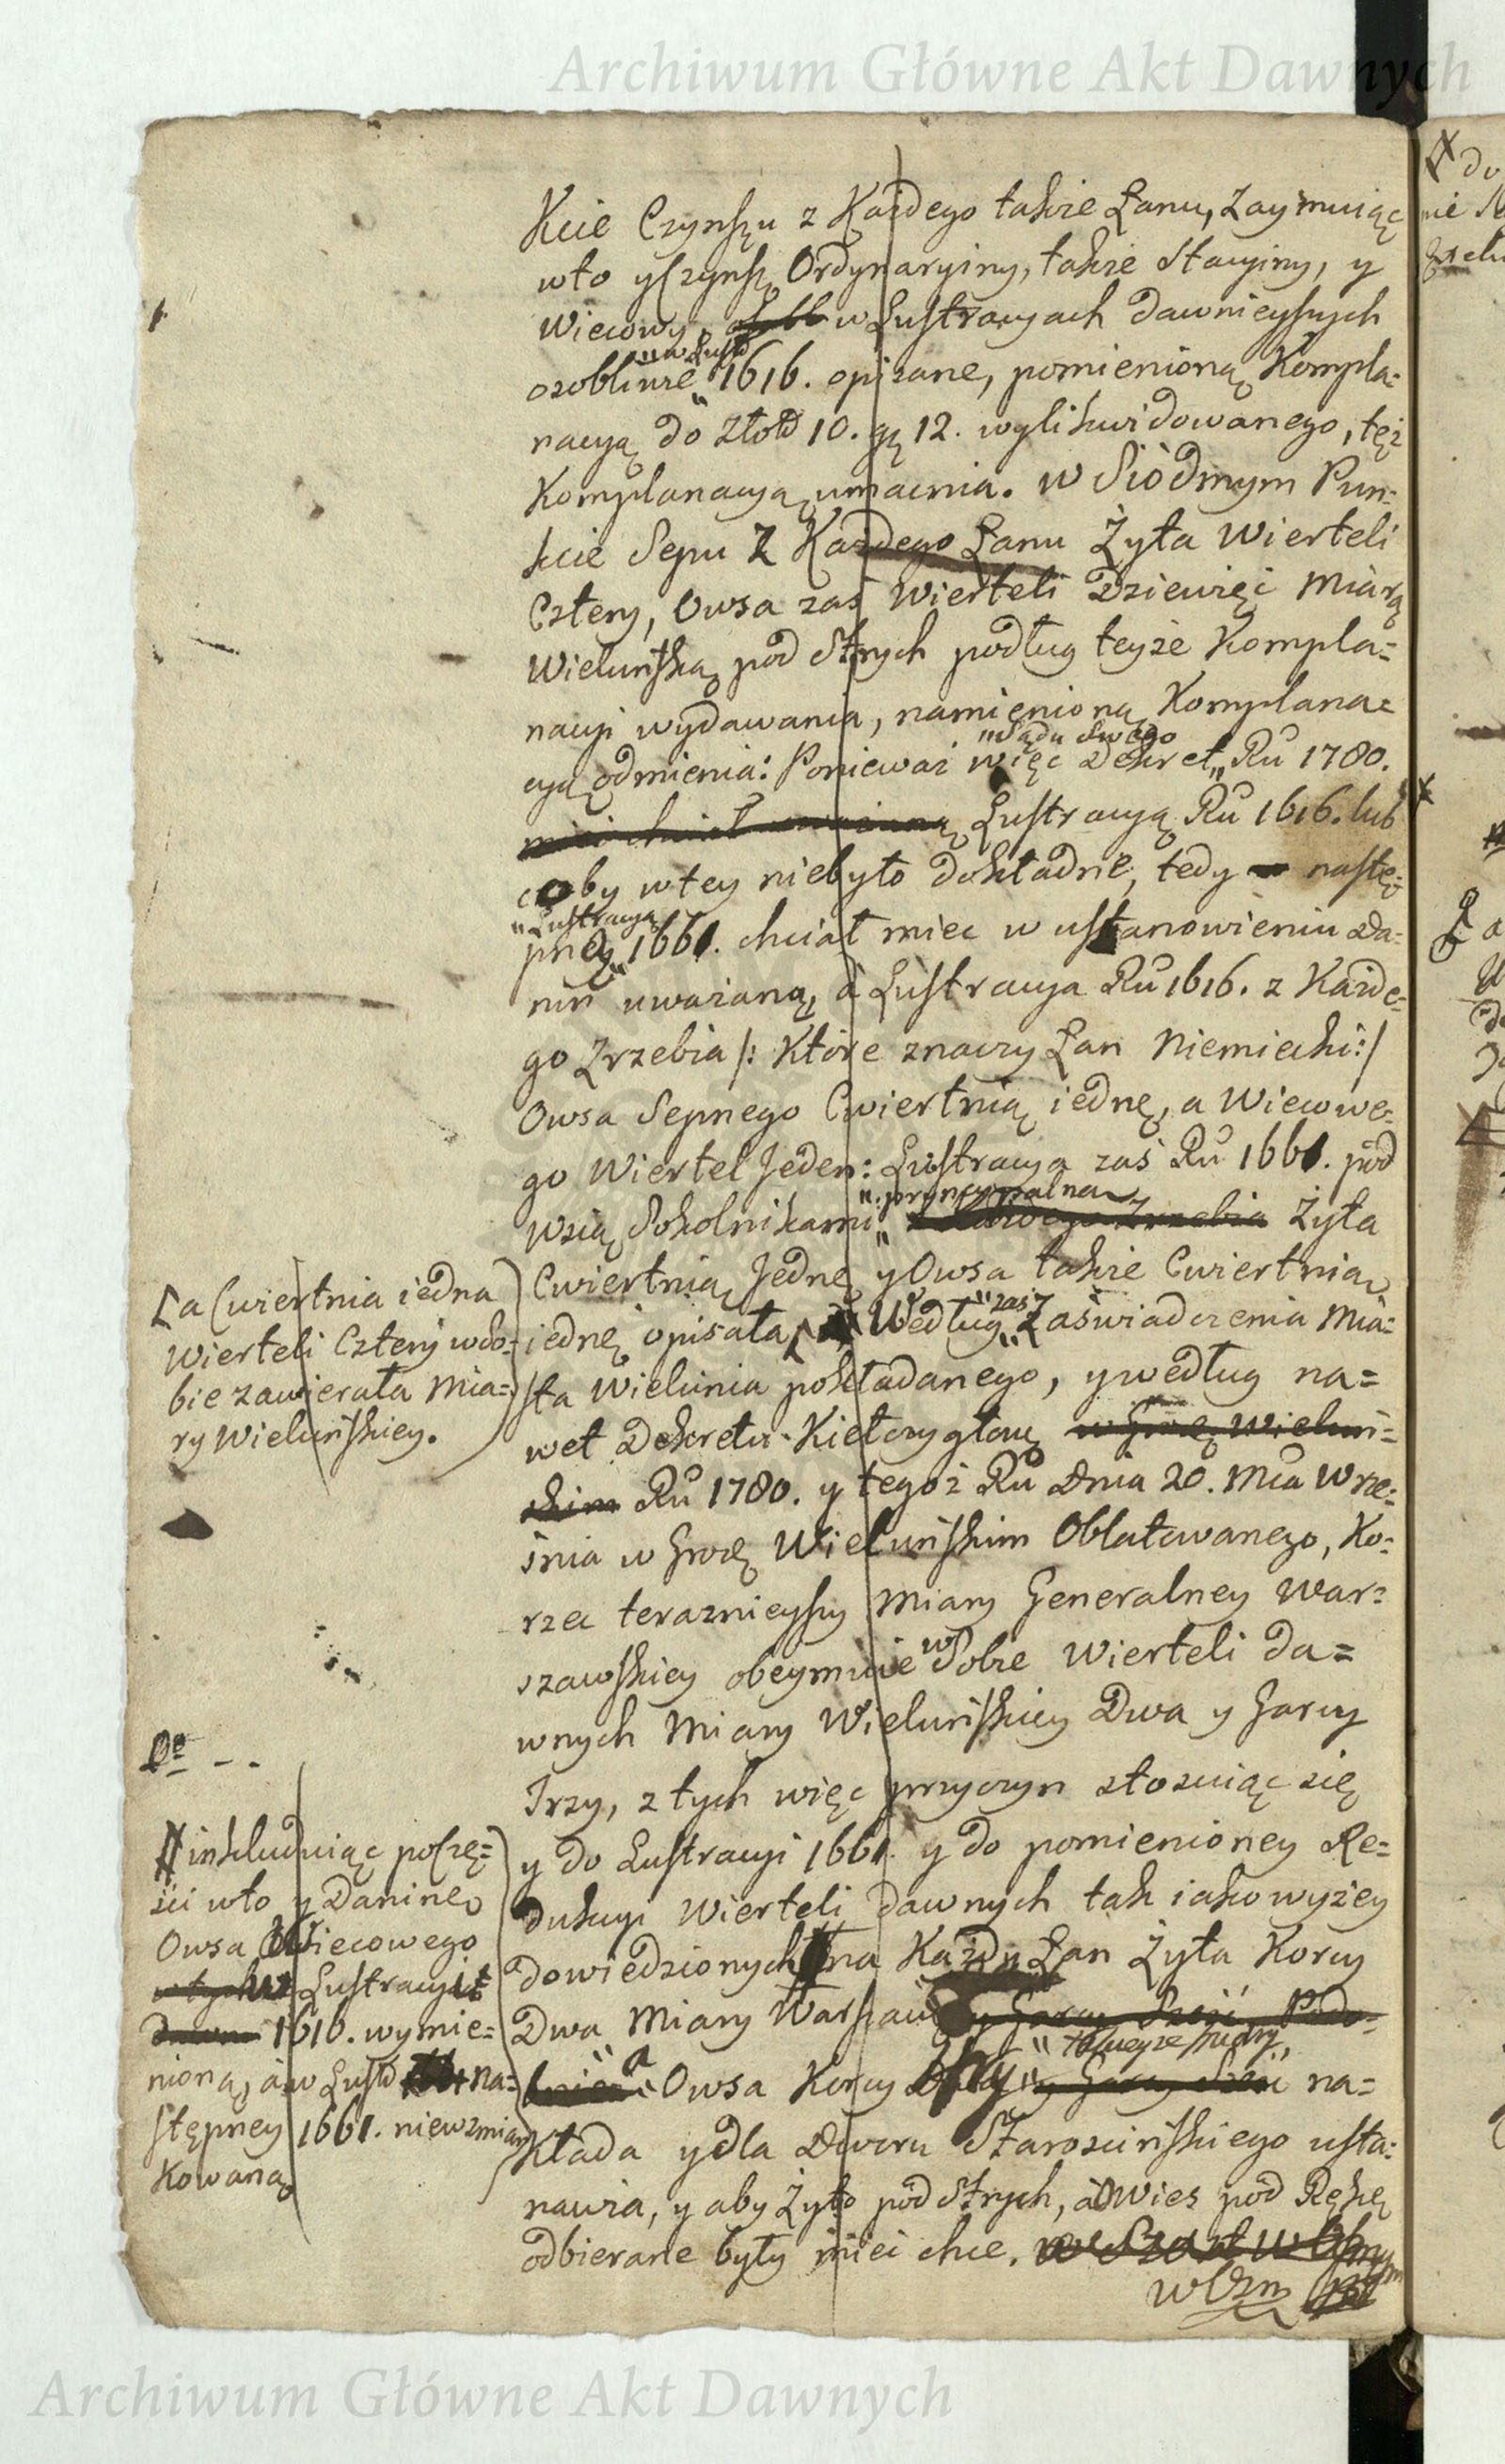 Archiwum Główne Akt Dawnych
Kcie Czynszu z Każdego także Łanu, Zaymuiąc
wto y Czynsz Ordynaryiny, także Stacyiny, y
Wiecowy, w Lustracyach dawnieyszych
"w Lust
osobliwie 1616. opisane, pomienioną Kompla=
nacyą do Złotd 10. gr 12. wylikwidowanego, tęż
Komplanacyą umacnia. w Siódmym Pun=
kcie Sepu z Każdego Łanu Żyta Wierteli
Cztery, Owsa zaś Wierteli Dziewięć Miarą
Wieluńską pod Strych podług teyże Kompla=
nacyi wydawania, namienioną Komplana=
"Sądu Swego
cyą odmienia: Ponieważ więc Dekret „ Ru 1780.
mieć chciał uważaną Lustracyą Ru 1616. lub
coby wtey niebyło dokładne, tedy nastę=
"Lustracyą
pną „ 1661. chciał mieć w ustanowieniu Da=
nin uważaną, à Lustracya Ru 1616. z Każde=
go Zrzebia /: Które znaczy Łan Niemiecki :/
Owsa Sepnego Cwiertnią iednę, a Wiecowe=
go Wiertel Jeden: Lustracya zaś Ru 1661. pod
"pryncypalna
Wsią Sokolnikami „ z Każdego Zrzebia Żyta
Cwiertnią Jednę y Owsa także Cwiertnią
"zaś
iednę opisała, Według „ Zaświadczenia Mia=
sta Wielunia pokładanego, y według na=
wet Dekretu Kiełczygłową w Grodz. Wieluń=
skim Ru 1780. y tegoż Ru Dnia 20. Mca Wrze=
śnia w Grodz. Wieluńskim Oblatowanego, Ko=
rzec teraznieyszy Miary Generalney War=
szawskiey obeymuie w Sobie Wierteli da=
wnych Miary Wieluńskiey Dwa y Garcy
Trzy, z tych więc przyczyn stosuiąc się
y do Lustracyi 1661. y do pomienioney Re=
dukcyi Wierteli dawnych tak iako wyżey
dowiedzionych na Każdy Łan Żyta Korcy
Dwa Miary Warszaw y Garcy Sześć, Podo=
"takieyże miary
bnież a Owsa Korcy y Garcy Sześć na=
kłada y dla Dworu Starościńskiego usta=
nawia, y aby Żyto pod Strych, à Owies pod Rękę
odbierane były mieć chce.
w Ósm
La Cwiertnia iedna
Wierteli Cztery wso=
bie zawierała Mia=
ry Wieluńskiey.
Do - -
# inkluduiąc poczę=
ści wto y Daninę
Owsa Wiecowego
w tychże Lustracyi
dawn 1616. wymie=
nioną, à w Lustd na=
stępney 1661. niewzmian
kowaną
Archiwum Główne Akt Dawnych